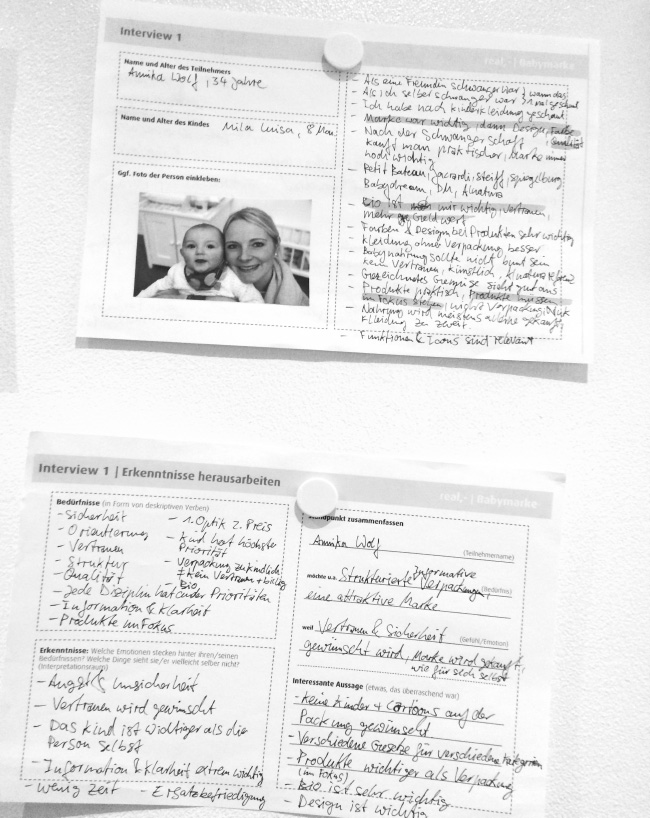 Interview 1
real,- | Babymarke
Name und Alter des Teilnehmers
Annika Wolf, 34 Jahre
Name und Alter des Kindes
Mila Luisa, 8 Mon.
Ggf. Foto der Person einkleben:
- Als eine Freundin schwanger war
- Als ich selber schwanger war
- Ich habe nach Kinderkleidung geschaut
- Marke war wichtig, dann Design, Farbe
- Nach der Schwangerschaft
kauft man praktischer, Marke immer
noch wichtig
- Petit Bateau, Jacardi, Steiff, Spiegelburg
Babydream, DM, Alnatura
- Bio ist mir wichtig, Vertrauen,
mehr Geld wert
- Farben & Design bei Produkten sehr wichtig
- Kleidung ohne Verpackung besser
- Babynahrung sollte nicht bunt sein
kein Vertrauen, künstlich, Alnatura
- Gezeichnetes Gemüse sieht gut aus
- Produkte praktisch, Produkte müssen
im Fokus stehen, Verpackung, Nuk
- Nahrung wird meistens alleine gekauft
Kleidung zu zweit
- Funktionen & Icons sind relevant
Interview 1 | Erkenntnisse herausarbeiten
real,- | Babymarke
Bedürfnisse (in Form von deskriptiven Verben)
- Sicherheit
- Orientierung
- Vertrauen
- Struktur
- Qualität
- Jede Disziplin hat andere Prioritäten
- Information & Klarheit
- Produkte im Fokus
- 1. Optik 2. Preis
- Kind hat höchste
Priorität
- Verpackung zu kindlich
≠ kein Vertrauen + billig
Bio
Erkenntnisse: Welche Emotionen stecken hinter ihren/seinen
Bedürfnissen? Welche Dinge sieht sie/er vielleicht selber nicht?
(Interpretationsraum)
- Angst & Unsicherheit
- Vertrauen wird gewünscht
- Das Kind ist wichtiger als die
Person selbst
- Information & Klarheit extrem wichtig
- wenig Zeit - Ersatzbefriedigung
zusammenfassen
Annika Wolf
(Teilnehmername)
möchte u.a. Strukturierte, Informative Verpackungen,
(Bedürfnis)
eine attraktive Marke
weil Vertrauen & Sicherheit
(Gefühl/Emotion)
gewünscht wird, Marke wird gekauft,
wie für sich selbst
Interessante Aussage (etwas, das überraschend war)
- Keine Kinder + Cartoons auf der
Packung gewünscht
- Verschiedene Gesetze für verschiedene Kategorien
- Produkte wichtiger als Verpackung
(im Fokus)
- Bio ist sehr wichtig
- Design ist wichtig